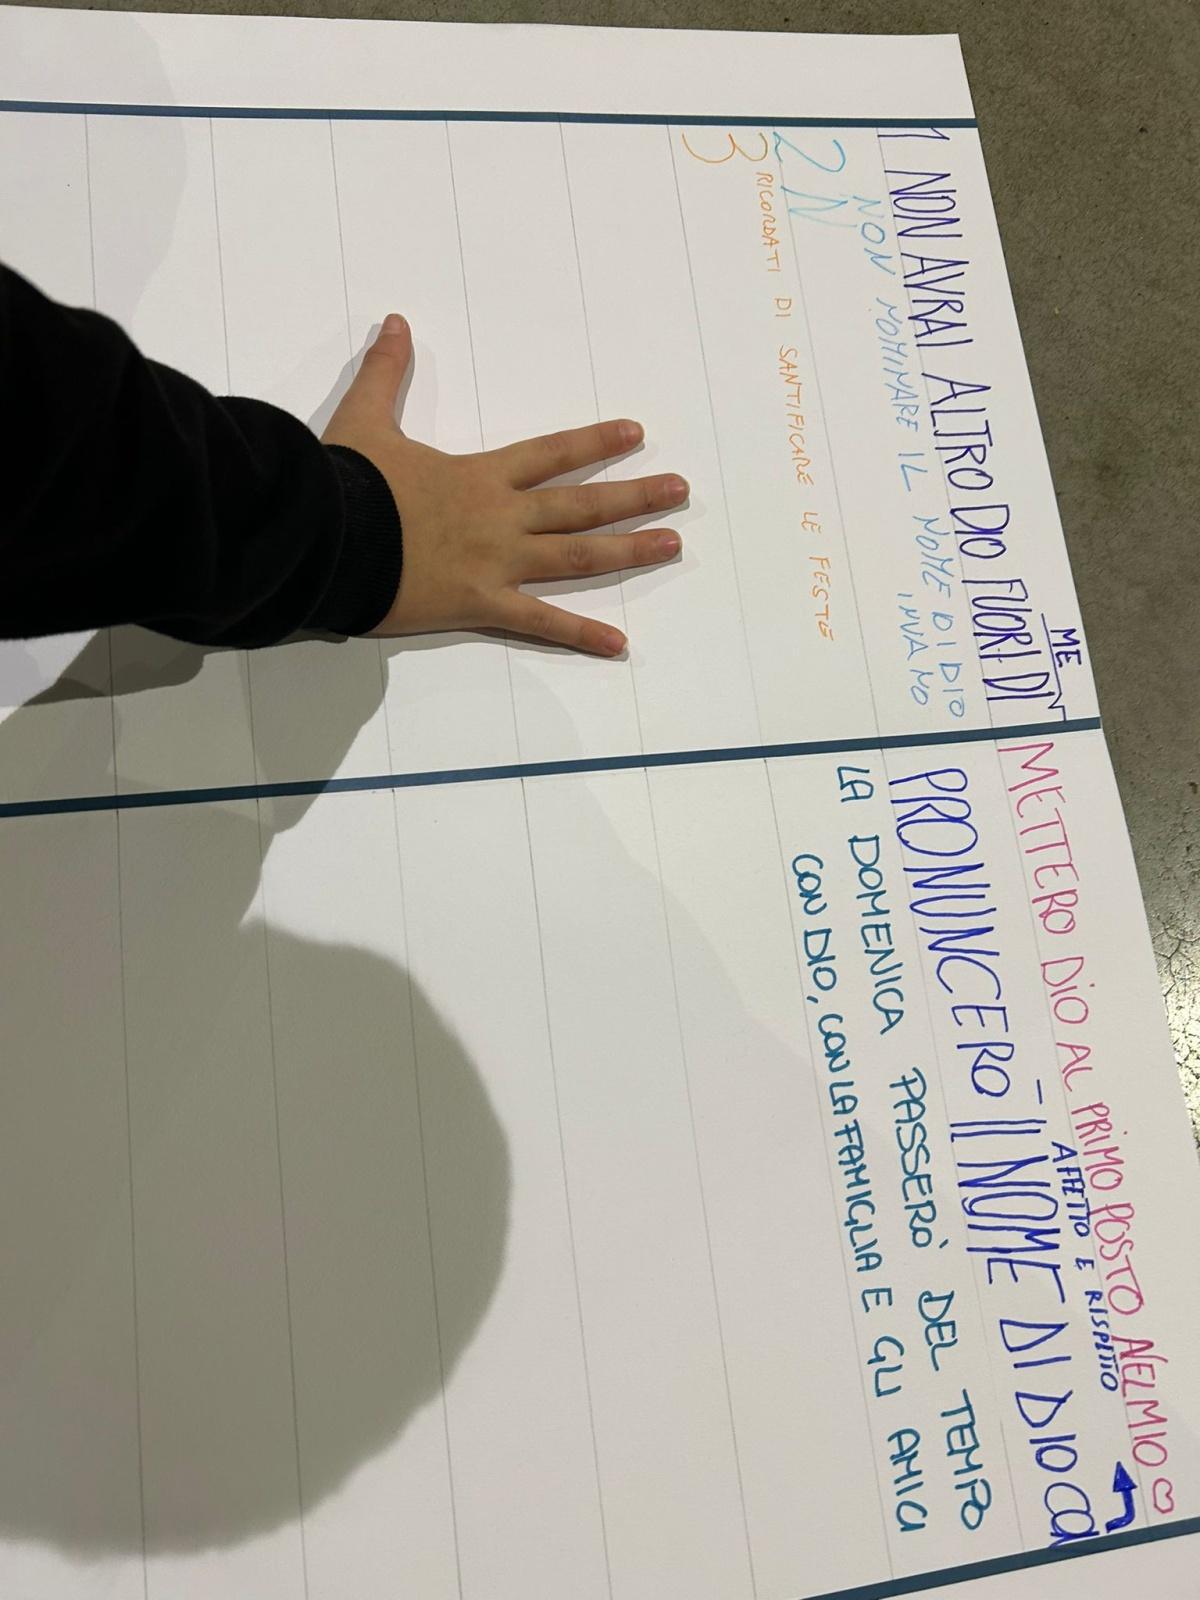 1 NON AVRAI ALTRO DIO FUORI DI
ME
2 NON NOMINARE IL NOME DI DIO
N INVANO
3 RICORDATI DI SANTIFICARE LE FESTE
METTERO DIO AL PRIMO POSTO NEL MIO ♡
PRONUNCERÒ IL NOME DI DIO CON
AFFETTO E RISPETTO
LA DOMENICA PASSERÒ DEL TEMPO
CON DIO, CON LA FAMIGLIA E GLI AMICI